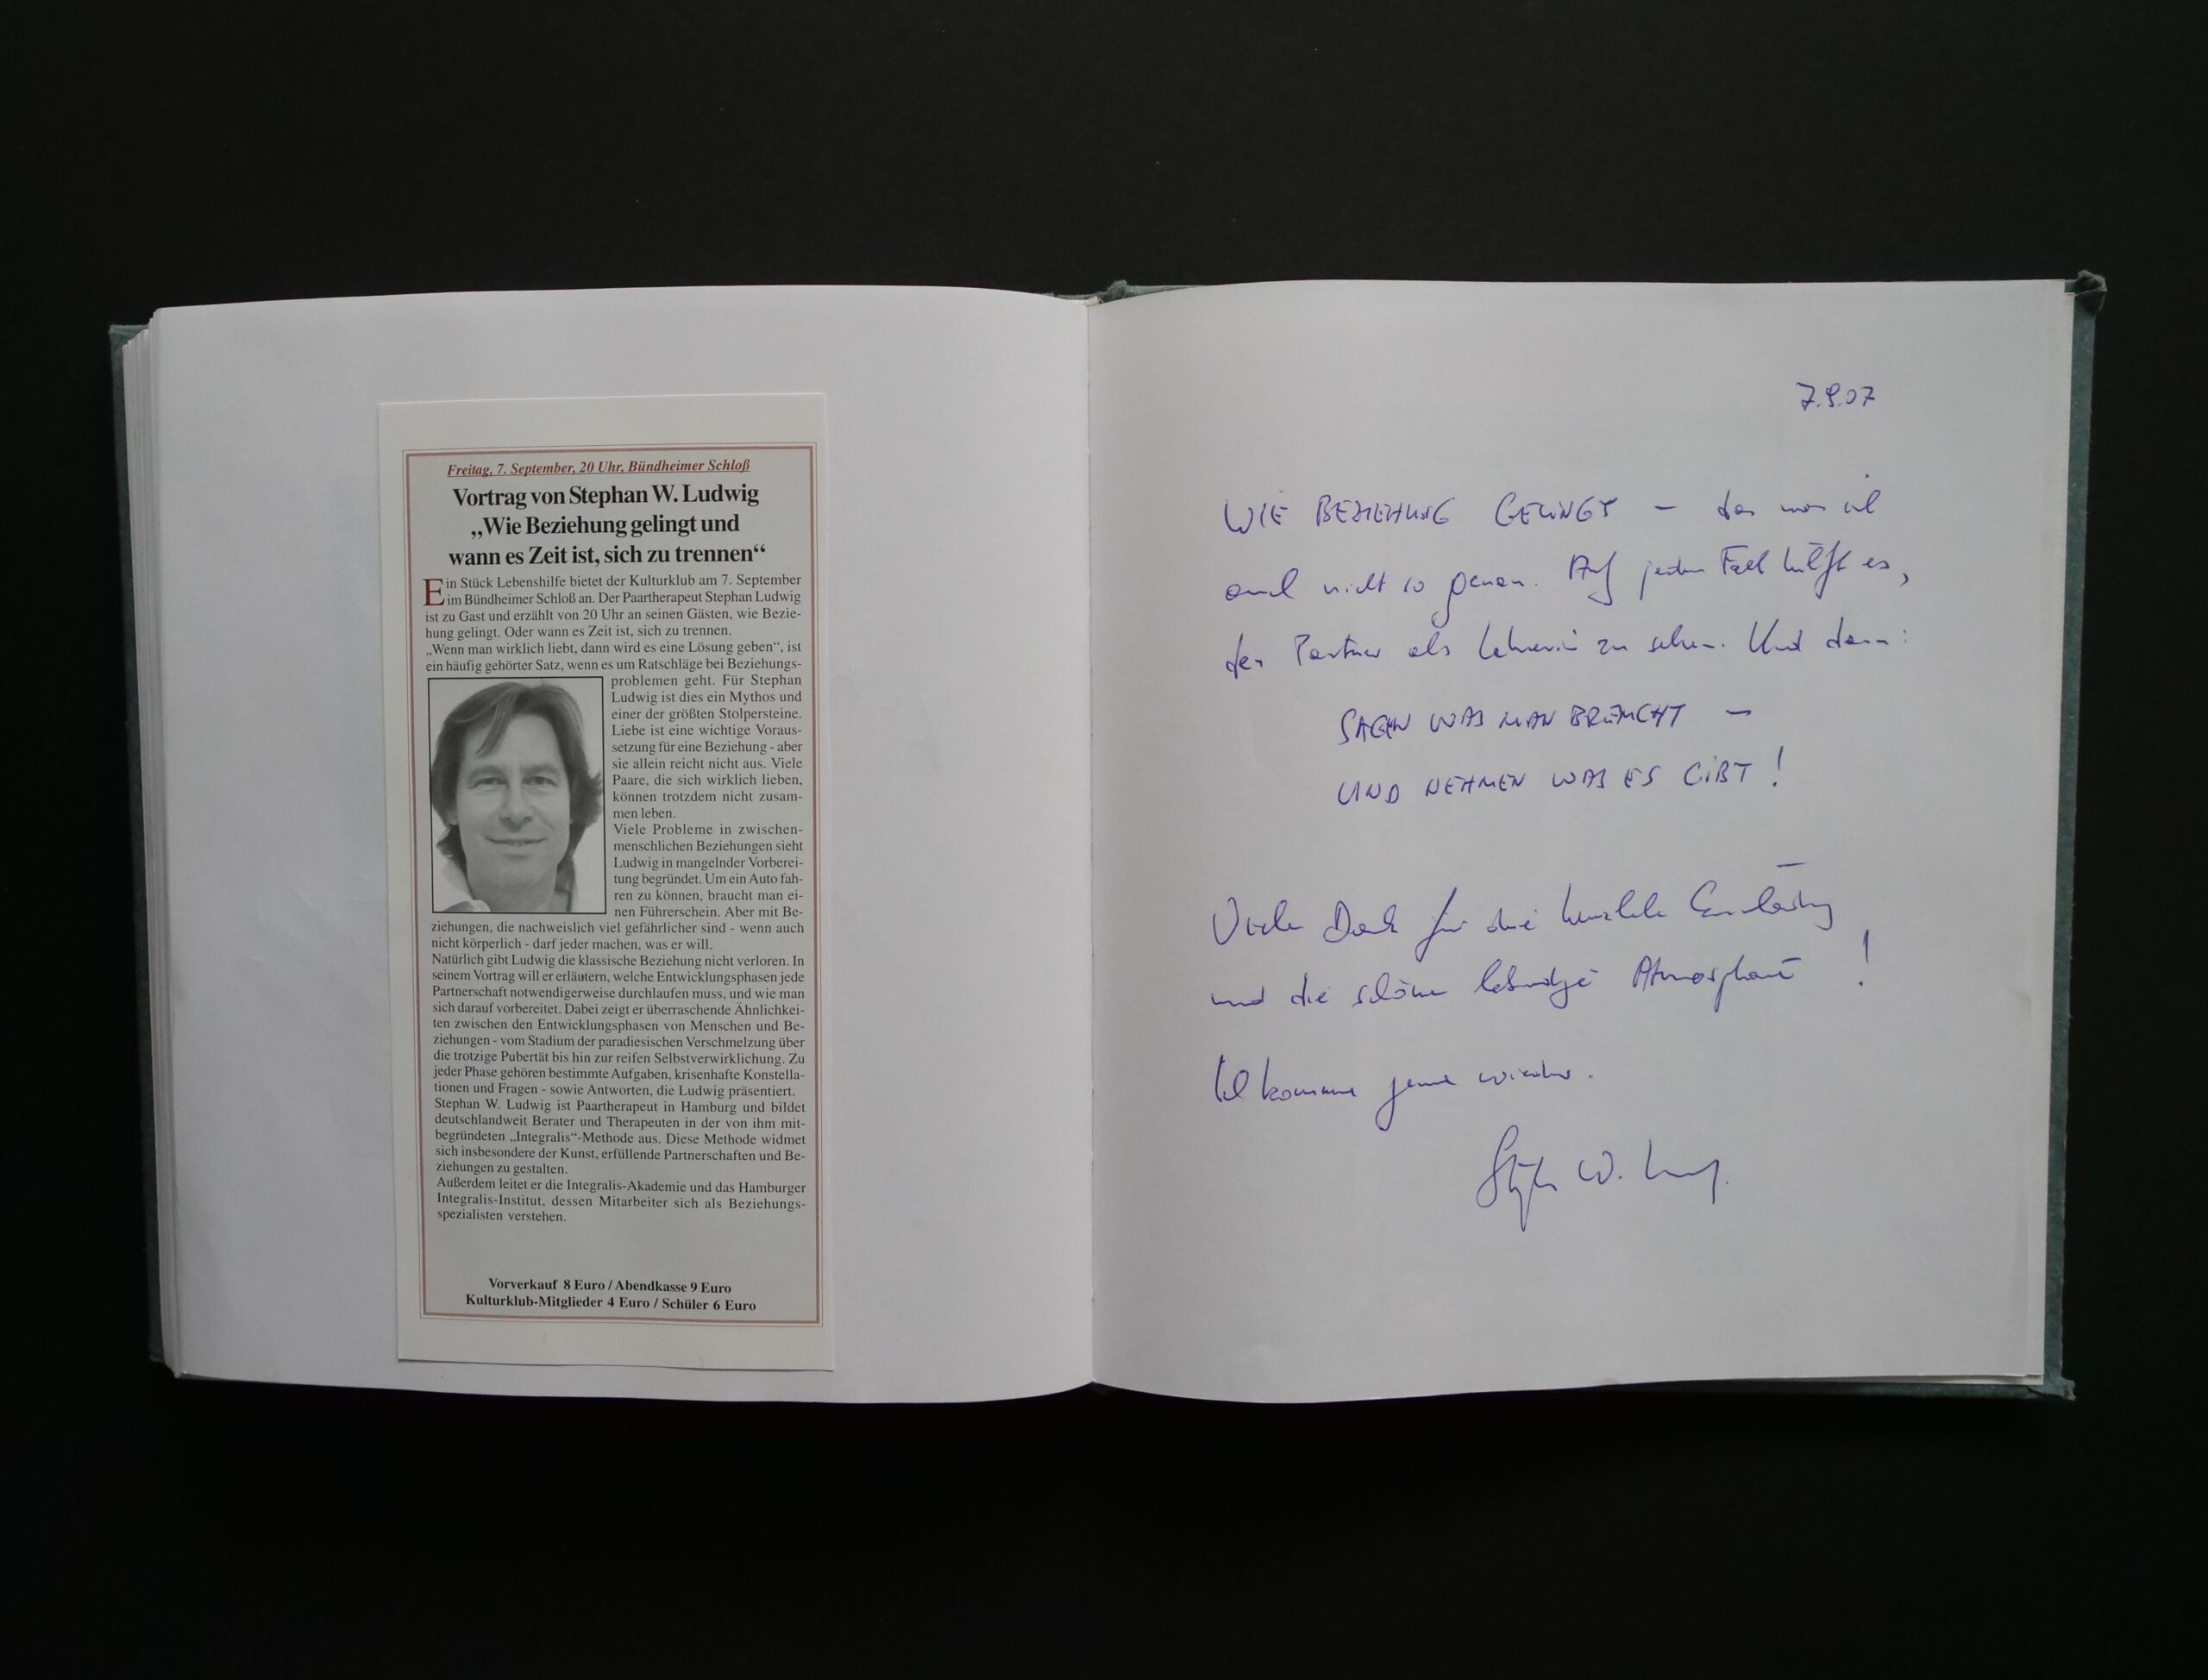 Freitag, 7. September, 20 Uhr, Bündheimer Schloß
Vortrag von Stephan W. Ludwig
„Wie Beziehung gelingt und
wann es Zeit ist, sich zu trennen“
Ein Stück Lebenshilfe bietet der Kulturklub am 7. September
im Bündheimer Schloß an. Der Paartherapeut Stephan Ludwig
ist zu Gast und erzählt von 20 Uhr an seinen Gästen, wie Bezie-
hung gelingt. Oder wann es Zeit ist, sich zu trennen.
„Wenn man wirklich liebt, dann wird es eine Lösung geben“, ist
ein häufig gehörter Satz, wenn es um Ratschläge bei Beziehungs-
problemen geht. Für Stephan
Ludwig ist dies ein Mythos und
einer der größten Stolpersteine.
Liebe ist eine wichtige Voraus-
setzung für eine Beziehung - aber
sie allein reicht nicht aus. Viele
Paare, die sich wirklich lieben,
können trotzdem nicht zusam-
men leben.
Viele Probleme in zwischen-
menschlichen Beziehungen sieht
Ludwig in mangelnder Vorberei-
tung begründet. Um ein Auto fah-
ren zu können, braucht man ei-
nen Führerschein. Aber mit Be-
ziehungen, die nachweislich viel gefährlicher sind - wenn auch
nicht körperlich - darf jeder machen, was er will.
Natürlich gibt Ludwig die klassische Beziehung nicht verloren. In
seinem Vortrag will er erläutern, welche Entwicklungsphasen jede
Partnerschaft notwendigerweise durchlaufen muss, und wie man
sich darauf vorbereitet. Dabei zeigt er überraschende Ähnlichkei-
ten zwischen den Entwicklungsphasen von Menschen und Be-
ziehungen - vom Stadium der paradiesischen Verschmelzung über
die trotzige Pubertät bis hin zur reifen Selbstverwirklichung. Zu
jeder Phase gehören bestimmte Aufgaben, krisenhafte Konstella-
tionen und Fragen - sowie Antworten, die Ludwig präsentiert.
Stephan W. Ludwig ist Paartherapeut in Hamburg und bildet
deutschlandweit Berater und Therapeuten in der von ihm mit-
begründeten „Integralis“-Methode aus. Diese Methode widmet
sich insbesondere der Kunst, erfüllende Partnerschaften und Be-
ziehungen zu gestalten.
Außerdem leitet er die Integralis-Akademie und das Hamburger
Integralis-Institut, dessen Mitarbeiter sich als Beziehungs-
spezialisten verstehen.
Vorverkauf 8 Euro / Abendkasse 9 Euro
Kulturklub-Mitglieder 4 Euro / Schüler 6 Euro
7.9.07
WIE BEZIEHUNG GELINGT – das weiss ich
auch nicht so genau. Auf jeden Fall hilft es,
den Partner als Lehrer zu sehen. Und dann:
SAGEN WAS MAN BRAUCHT –
UND NEHMEN WAS ES GIBT!
Vielen Dank für die herzliche Einladung
und die schöne lebendige Atmosphäre!
Ich komme gerne wieder.
Stephan W. Ludwig